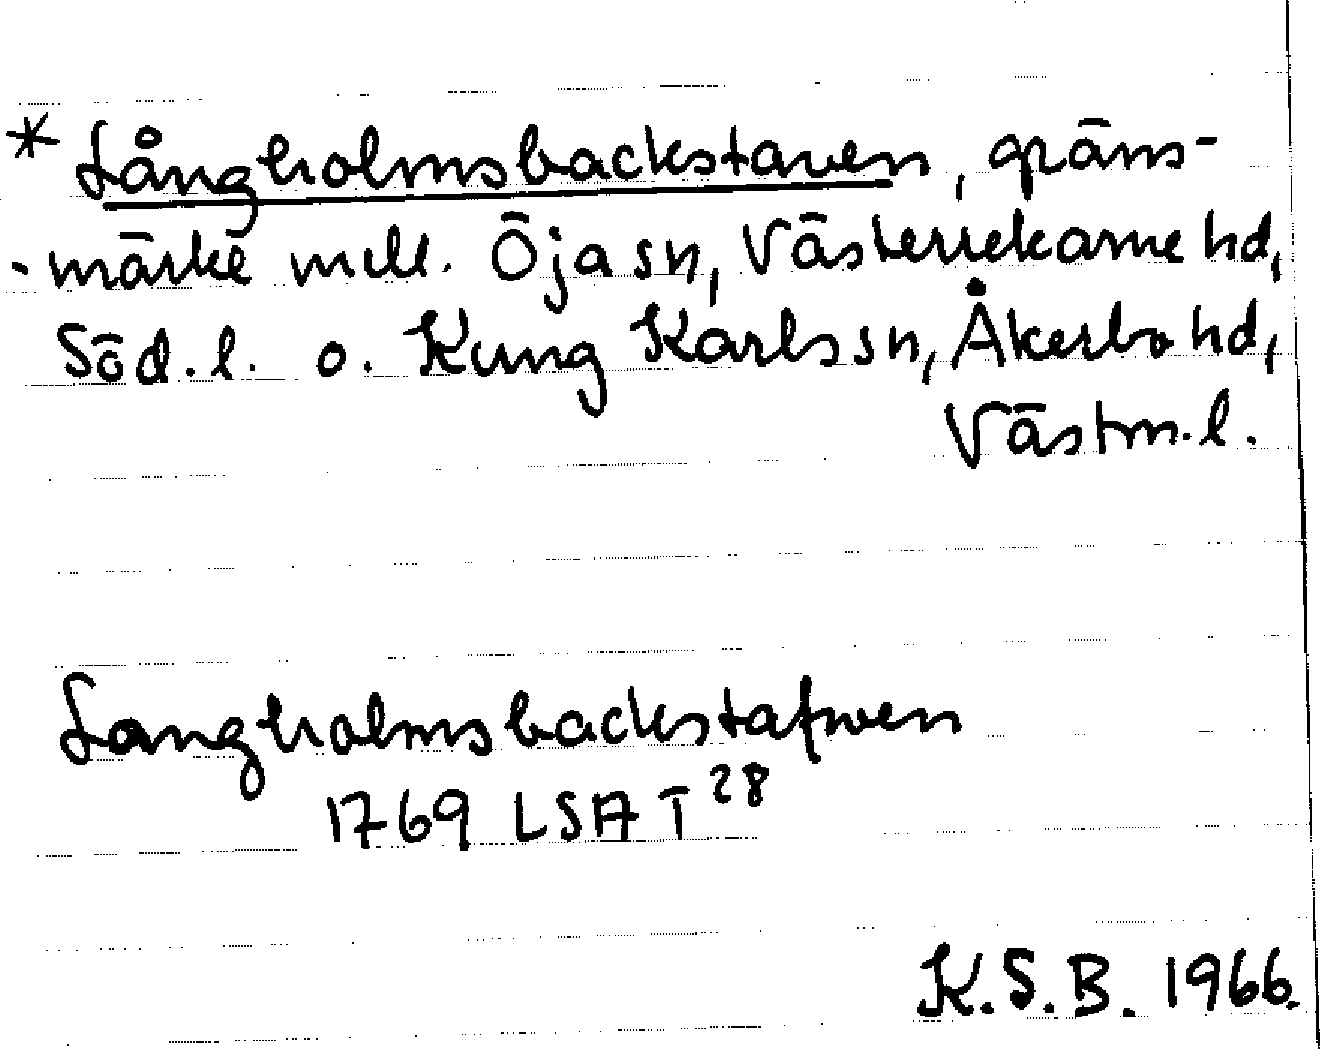 * Långholmsbackstaven, gräns-
-märke mell. Öja sn, Västerrekarne hd,
Söd.l. o. Kung Karls sn, Åkerbo hd,
Västm.l.
Langholmsbackstafwen
1769 LSA T 28
K.S.B. 1966.